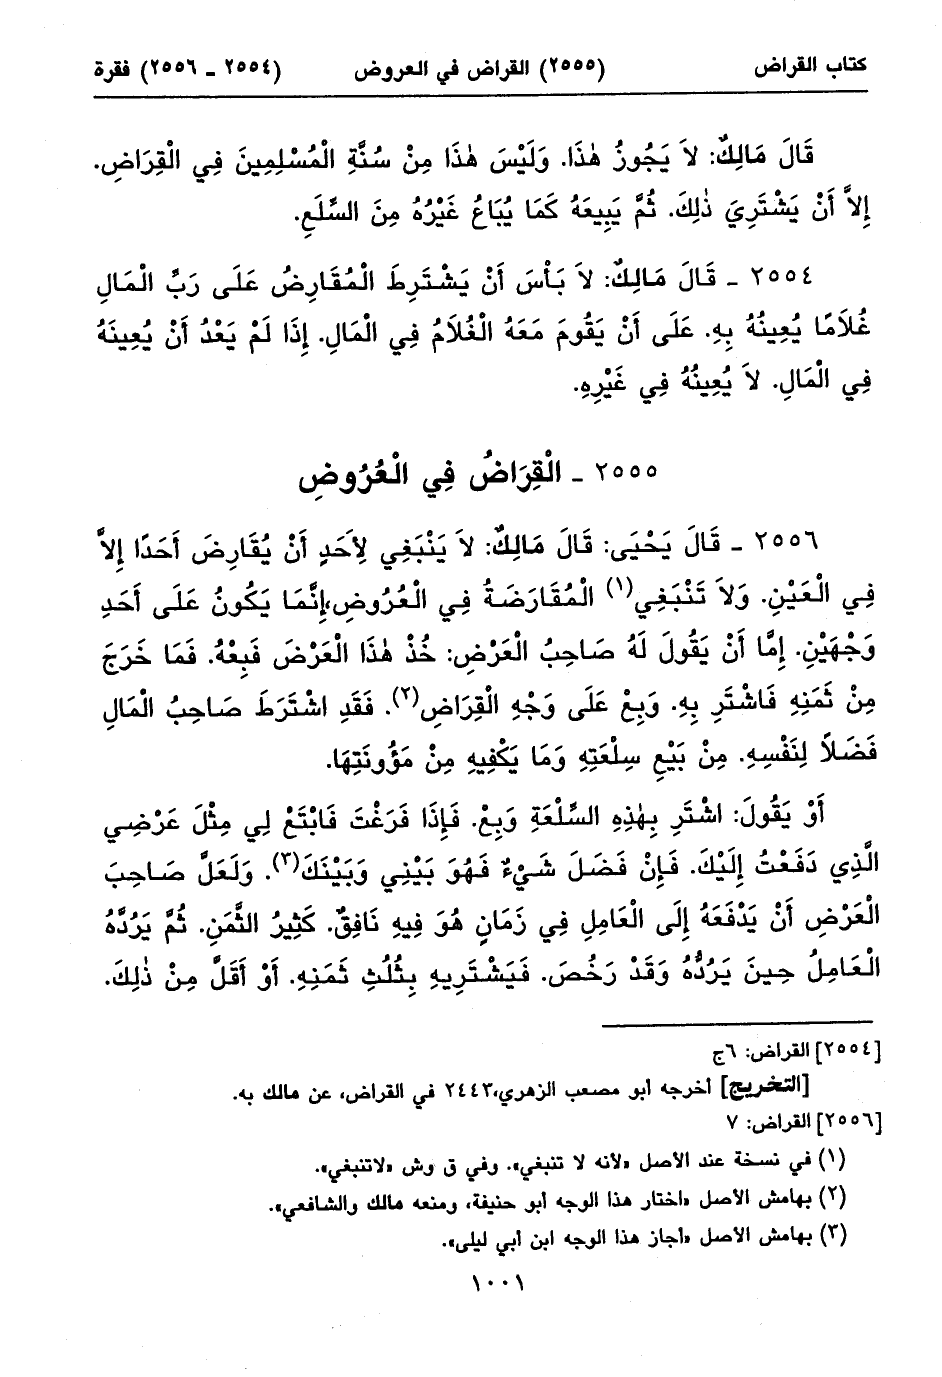 كتاب القراض (٢٥٥٥) القراض في العروض (٢٥٥٤ - ٢٥٥٦) فقرة
قَالَ مَالِكٌ: لاَ يَجُوزُ هٰذَا. وَلَيْسَ هٰذَا مِنْ سُنَّةِ الْمُسْلِمِينَ فِي الْقِرَاضِ.
إِلاَّ أَنْ يَشْتَرِيَ ذٰلِكَ. ثُمَّ يَبِيعَهُ كَمَا يُبَاعُ غَيْرُهُ مِنَ السِّلَعِ.
٢٥٥٤ - قَالَ مَالِكٌ: لاَ بَأْسَ أَنْ يَشْتَرِطَ الْمُقَارِضُ عَلَى رَبِّ الْمَالِ
غُلاَمًا يُعِينُهُ بِهِ. عَلَى أَنْ يَقُومَ مَعَهُ الْغُلاَمُ فِي الْمَالِ. إِذَا لَمْ يَعْدُ أَنْ يُعِينَهُ
فِي الْمَالِ. لاَ يُعِينُهُ فِي غَيْرِهِ.
٢٥٥٥ - الْقِرَاضُ فِي الْعُرُوضِ
٢٥٥٦ - قَالَ يَحْيَى: قَالَ مَالِكٌ: لاَ يَنْبَغِي لِأَحَدٍ أَنْ يُقَارِضَ أَحَدًا إِلاَّ
فِي الْعَيْنِ. وَلاَ تَنْبَغِي(١) الْمُقَارَضَةُ فِي الْعُرُوضِ،إِنَّمَا يَكُونُ عَلَى أَحَدِ
وَجْهَيْنِ. إِمَّا أَنْ يَقُولَ لَهُ صَاحِبُ الْعَرْضِ: خُذْ هٰذَا الْعَرْضَ فَبِعْهُ. فَمَا خَرَجَ
مِنْ ثَمَنِهِ فَاشْتَرِ بِهِ. وَبِعْ عَلَى وَجْهِ الْقِرَاضِ(٢). فَقَدِ اشْتَرَطَ صَاحِبُ الْمَالِ
فَضْلاً لِنَفْسِهِ. مِنْ بَيْعِ سِلْعَتِهِ وَمَا يَكْفِيهِ مِنْ مَؤُونَتِهَا.
أَوْ يَقُولَ: اشْتَرِ بِهٰذِهِ السِّلْعَةِ وَبِعْ. فَإِذَا فَرَغْتَ فَابْتَعْ لِي مِثْلَ عَرْضِي
الَّذِي دَفَعْتُ إِلَيْكَ. فَإِنْ فَضَلَ شَيْءٌ فَهُوَ بَيْنِي وَبَيْنَكَ(٣). وَلَعَلَّ صَاحِبَ
الْعَرْضِ أَنْ يَدْفَعَهُ إِلَى الْعَامِلِ فِي زَمَانٍ هُوَ فِيهِ نَافِقٌ. كَثِيرُ الثَّمَنِ. ثُمَّ يَرُدَّهُ
الْعَامِلُ حِينَ يَرُدُّهُ وَقَدْ رَخُصَ. فَيَشْتَرِيهِ بِثُلُثِ ثَمَنِهِ. أَوْ أَقَلَّ مِنْ ذٰلِكَ.
[٢٥٥٤] القراض: ٦ج
[التخريج] أخرجه أبو مصعب الزهري،٢٤٤٣ في القراض، عن مالك به.
[٢٥٥٦] القراض: ٧
(١) في نسخة عند الأصل «لأنه لا تنبغي». وفي ق وش «لاتنبغي».
(٢) بهامش الأصل «اختار هذا الوجه أبو حنيفة، ومنعه مالك والشافعي».
(٣) بهامش الأصل «أجاز هذا الوجه ابن أبي ليلى».
١٠٠١